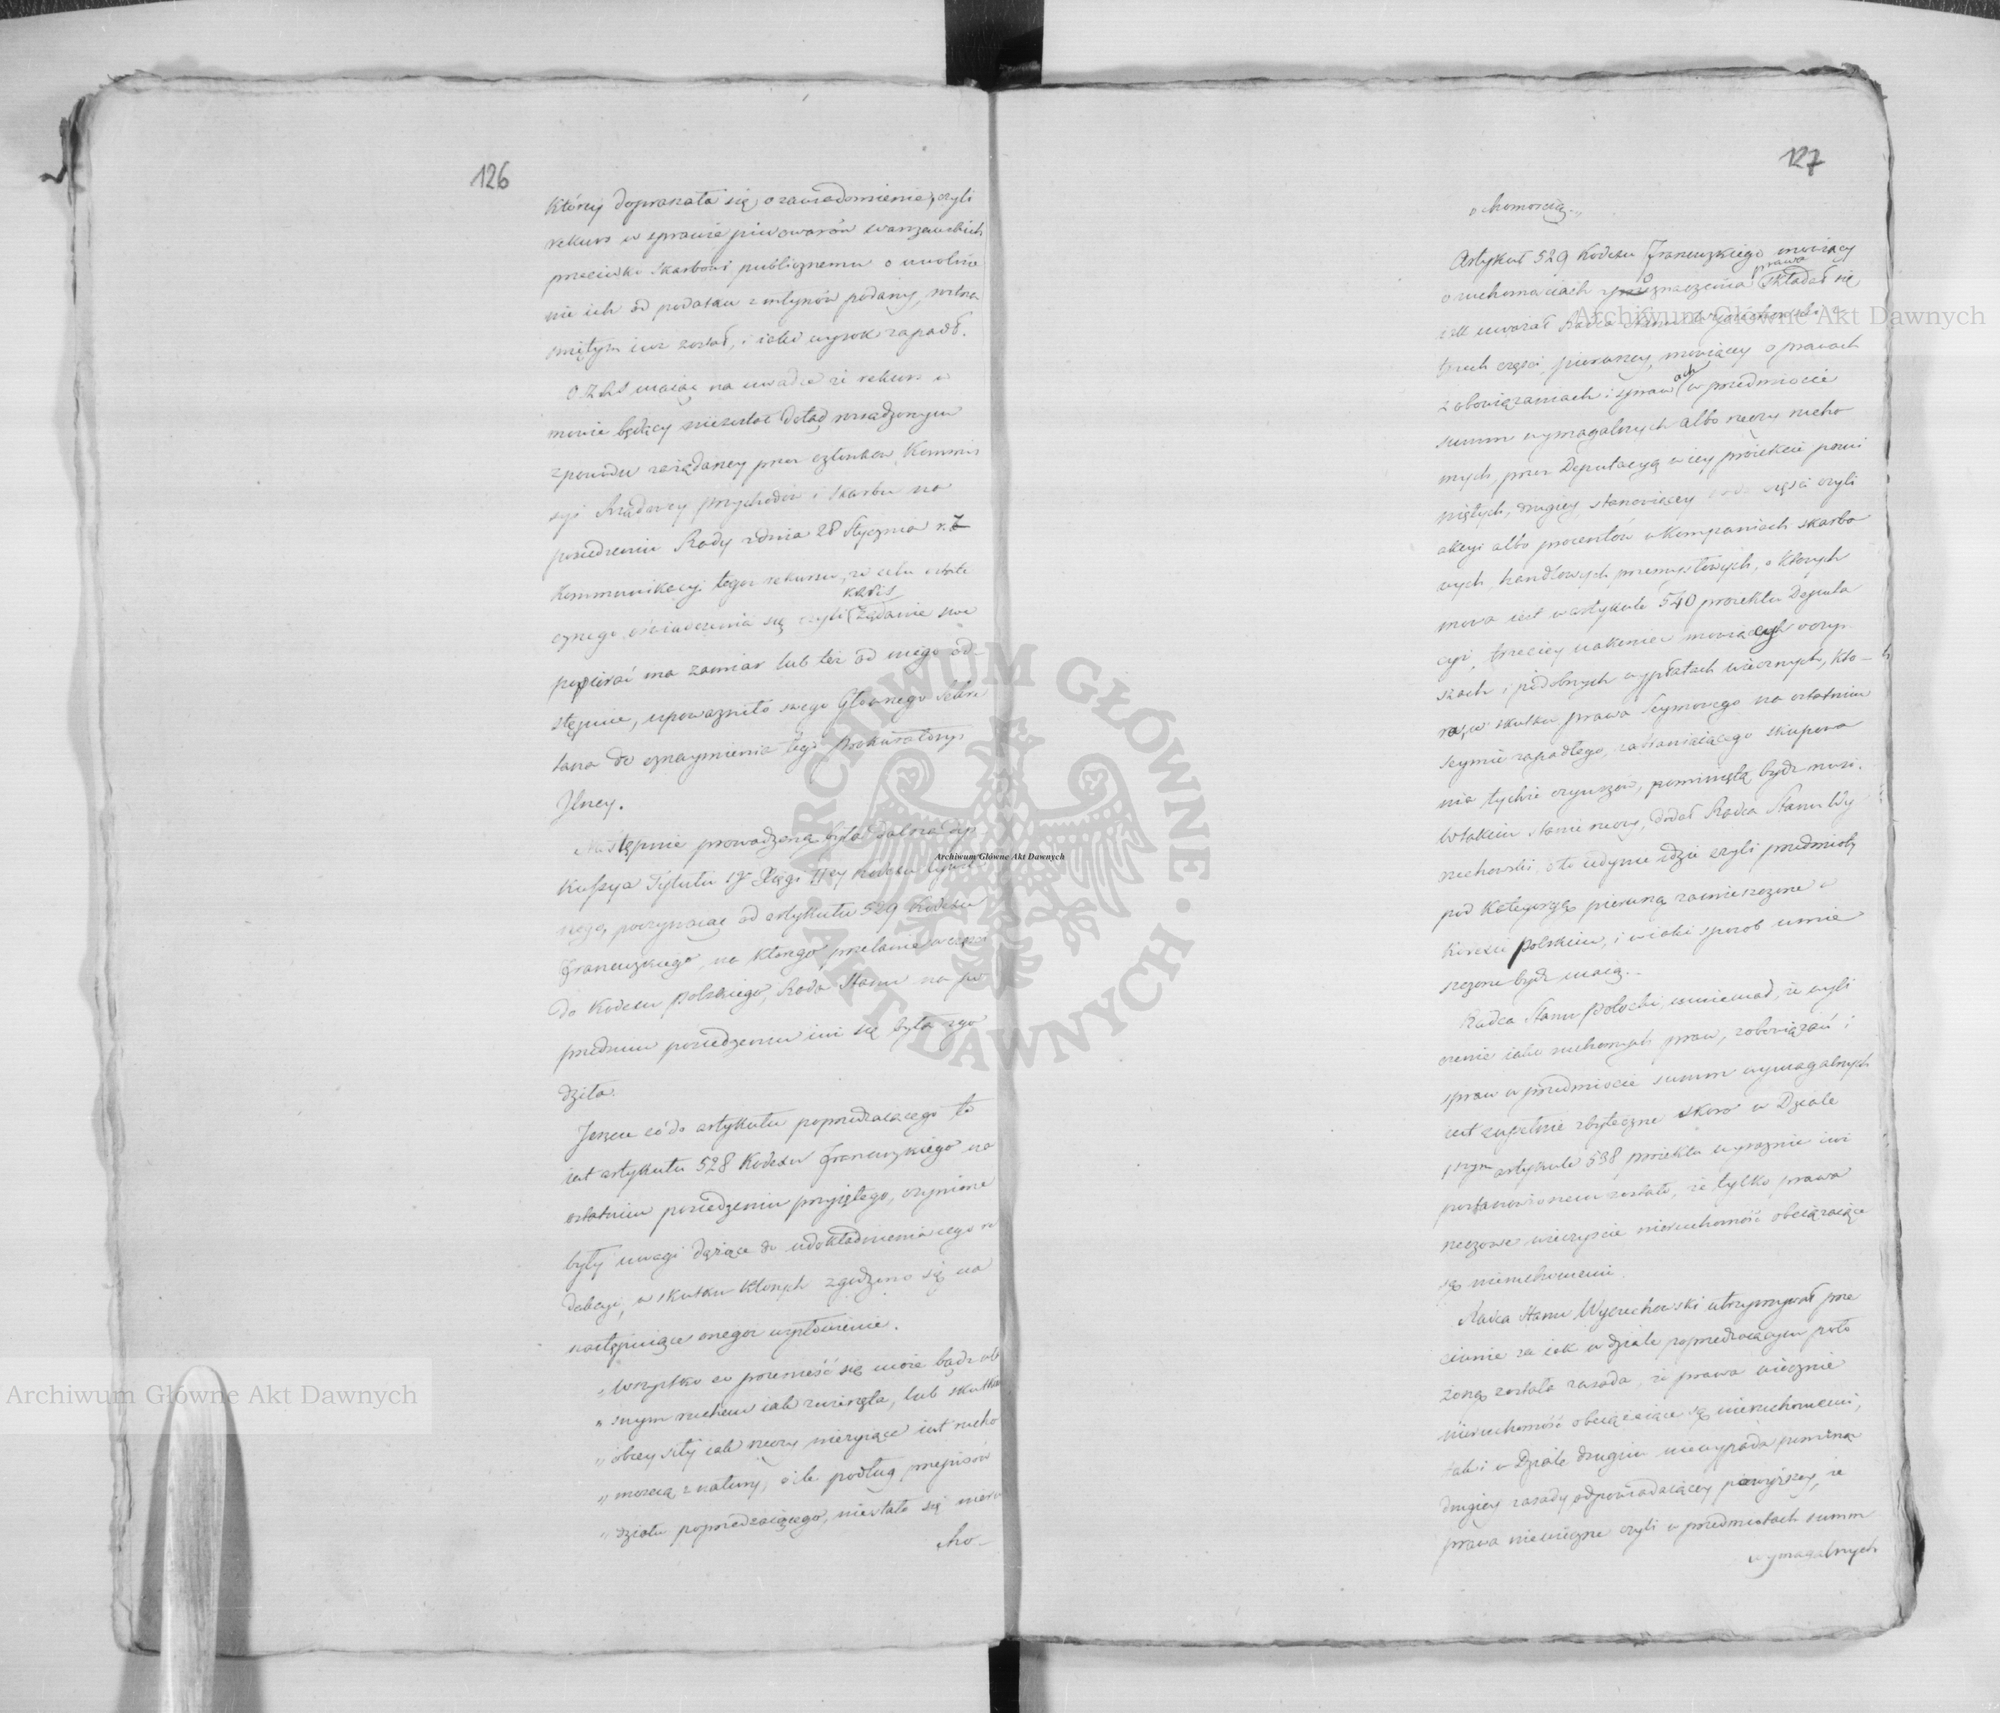 126
któréy dopraszała się o zawiadomienie, czyli
rekurs w sprawie piwowarów warszawskich
przeciwko Skarbowi publicznemu o uwolnie
nie ich od podatku z młynów podany, roztrzą
śniętym iuż został, i iaki wyrok zapadł.
maiąc na uwadze iż rekurs w
mowie będący niezostał dotąd rozsądzonym
z powodu zażądaney przez członków Kommis
syi Rządowey przychodów i Skarbu na
posiedzeniu Rady z dnia 28 Stycznia r. b.
kommunikacyi tegoż rekursu, w celu ostate
cznego oświadczenia się czyli żądanie swe
popierać ma zamiar lub też od niego od-
stąpienie, upoważniło swego Głównego Sekre
tarza do oznaymienia tego Prokuratoryi
Jlney.
Następnie prowadzona była dalsza dys
kussya Tytułu I Księgi IIey Kodexu cywil
nego, poczynaiąc od artykułu 529 Kodexu
Francuzkiego, na którego przelanie w części
do Kodexu Polskiego, Rada Stanu na po
przedniem posiedzeniu iuż się była zgo
dziła.
Jeszcze co do artykułu poprzedzaiącego to
iest artykułu 528 Kodexu Francuzkiego na
ostatniem posiedzeniu przyiętego, czynione
były uwagi dążące do udokładnienia iego re
dakcyi, w skutku których zgodzono się na
następuiące onegoż wysłowienie.
„Wszystko co przenieść się może bądź wła
„snym ruchem iak zwierzęta, lub skutkiem
„obcey siły iak rzeczy nieżyiące iest rucho
„mością z natury, o ile podług przepisów
„działu poprzedzaiącego, niestało się nieru
cho-
127
„chomością.„
Artykuł 529 Kodexu Francuzkiego mówiący
o ruchomościach z przeznaczenia prawa składał się
iak uważał Radca Stanu Wyczechowski z
trzech części, pierwszey, mówiącey o prawach
zobowiązaniach i sprawach w przedmiocie
summ wymagalnych albo rzeczy rucho
mych, przez Deputacyą w iey proiekcie pomi
niętych, drugiey, stanowiącey części czyli
akcyi albo procentów w kompaniach skarbo
wych, handlowych, przemysłowych, o których
mowa iest w artykule 540 proiektu Deputa
cyi, trzeciey nakoniec mówiącey o czyn-
szach i podobnych wypłatach wiecznych, któ-
ra, w skutku prawa Seymowego na ostatnim
Seymie zapadłego, zabraniaiącego skupowa
nia tychże czynszów, pominiętą bydź musi.
W takim stanie rzeczy, dodał Radca Stanu Wy
czechowski, o to iedynie idzie czyli przedmioty
pod kategoryą pierwszą zamieszczone w
Kodexie Polskim, i w iaki sposób umie
szczone bydź maią.
Radca Stanu Potocki, mniemał, że wyli
czenie iako ruchomych praw, zobowiązań i
spraw w przedmiocie summ wymagalnych
iest zupełnie zbyteczne skoro w Dziale
1szym artykule 538 proiektu wyraźnie iuż
postanowionem zostało, że tylko prawa
rzeczowe wieczyście nieruchomość obciążaiące
są nieruchomemi.
Radca Stanu Wyczechowski utrzymywał prze
ciwnie że iak w dziale poprzedzaiącym poło
żoną została zasada, że prawa wiecznie
nieruchomość obciążaiące są nieruchomemi,
tak i w Dziale drugim niewypada pominąć
drugiey zasady odpowiadaiącey pierwszey, że
prawa niewieczne czyli w przedmiotach summ
wymagalnych
ARCHIWUM GŁÓWNE AKT DAWNYCH
Archiwum Główne Akt Dawnych
Archiwum Główne Akt Dawnych
Archiwum Główne Akt Dawnych